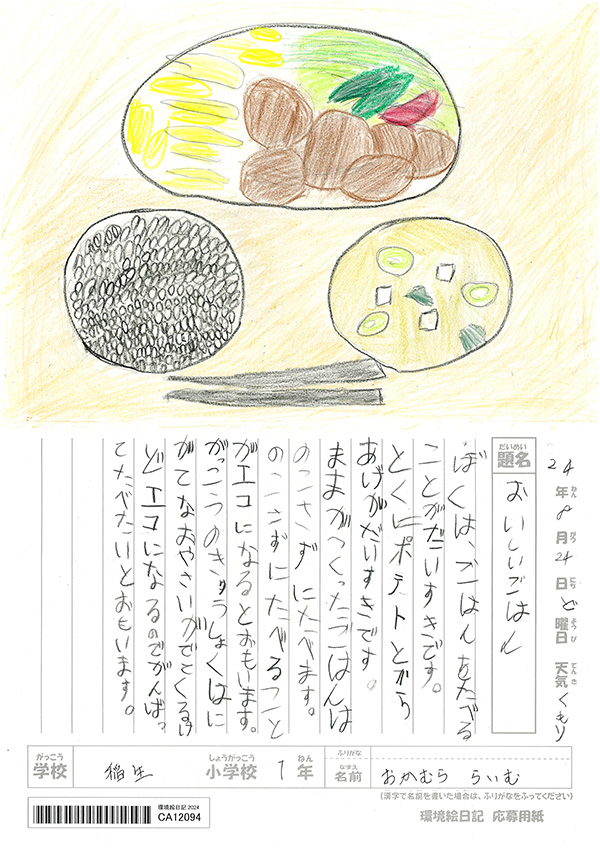 24年8月24日ど曜日 天気くもり
だいめい
題名
おいしいごはん
ぼくは、ごはんをたべる
ことがだいすきです。
とくにポテトとから
あげがだいすきです。
ままがつくったごはんは
のこさずにたべます。
のこさずにたべること
がエコになるとおもいます。
がっこうのきゅうしょくはに
がてなおやさいがでてくるけ
どエコになるのでがんばっ
てたべたいとおもいます。
がっこう しょうがっこう ねん
学校 稲生 小学校 1年
ふりがな
なまえ
名前 おかむら らいむ
(漢字で名前を書いた場合は、ふりがなをふってください)
環境絵日記 2024
CA12094
環境絵日記 応募用紙